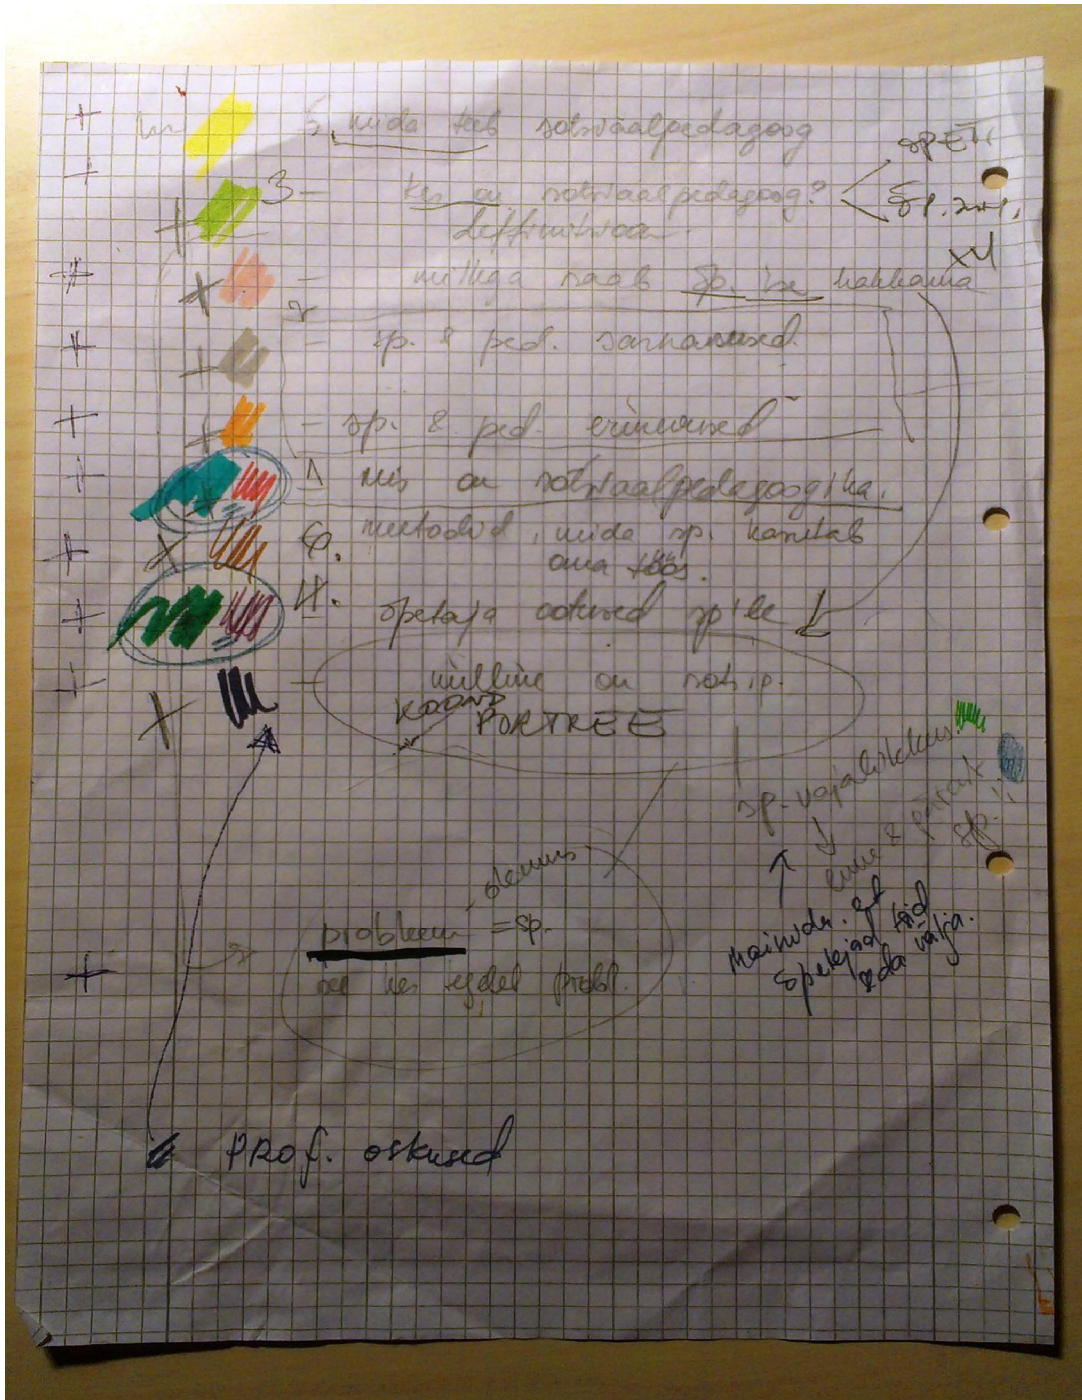 5. mida teeb sotsiaalpedagoog
ÕPET.
3 - kes on sotsiaalpedagoog?
deffinitsioon.
- millega saab sp. ise hakkama
2
- sp. & ped. sarnasused.
- sp. & ped erinevused
1 mis on sotsiaalpedagoogika.
6. metodid, mida sp. kasutab
oma töös.
4. õpetaja ootused sp'le
- milline on sots.p.
KOOND
PORTREE
sp. vajalikkus
enne & pärast
sp.!!
mainida, et
õpetajad tõid
seda välja.
, olemus
probleem = sp.
PROF. oskused